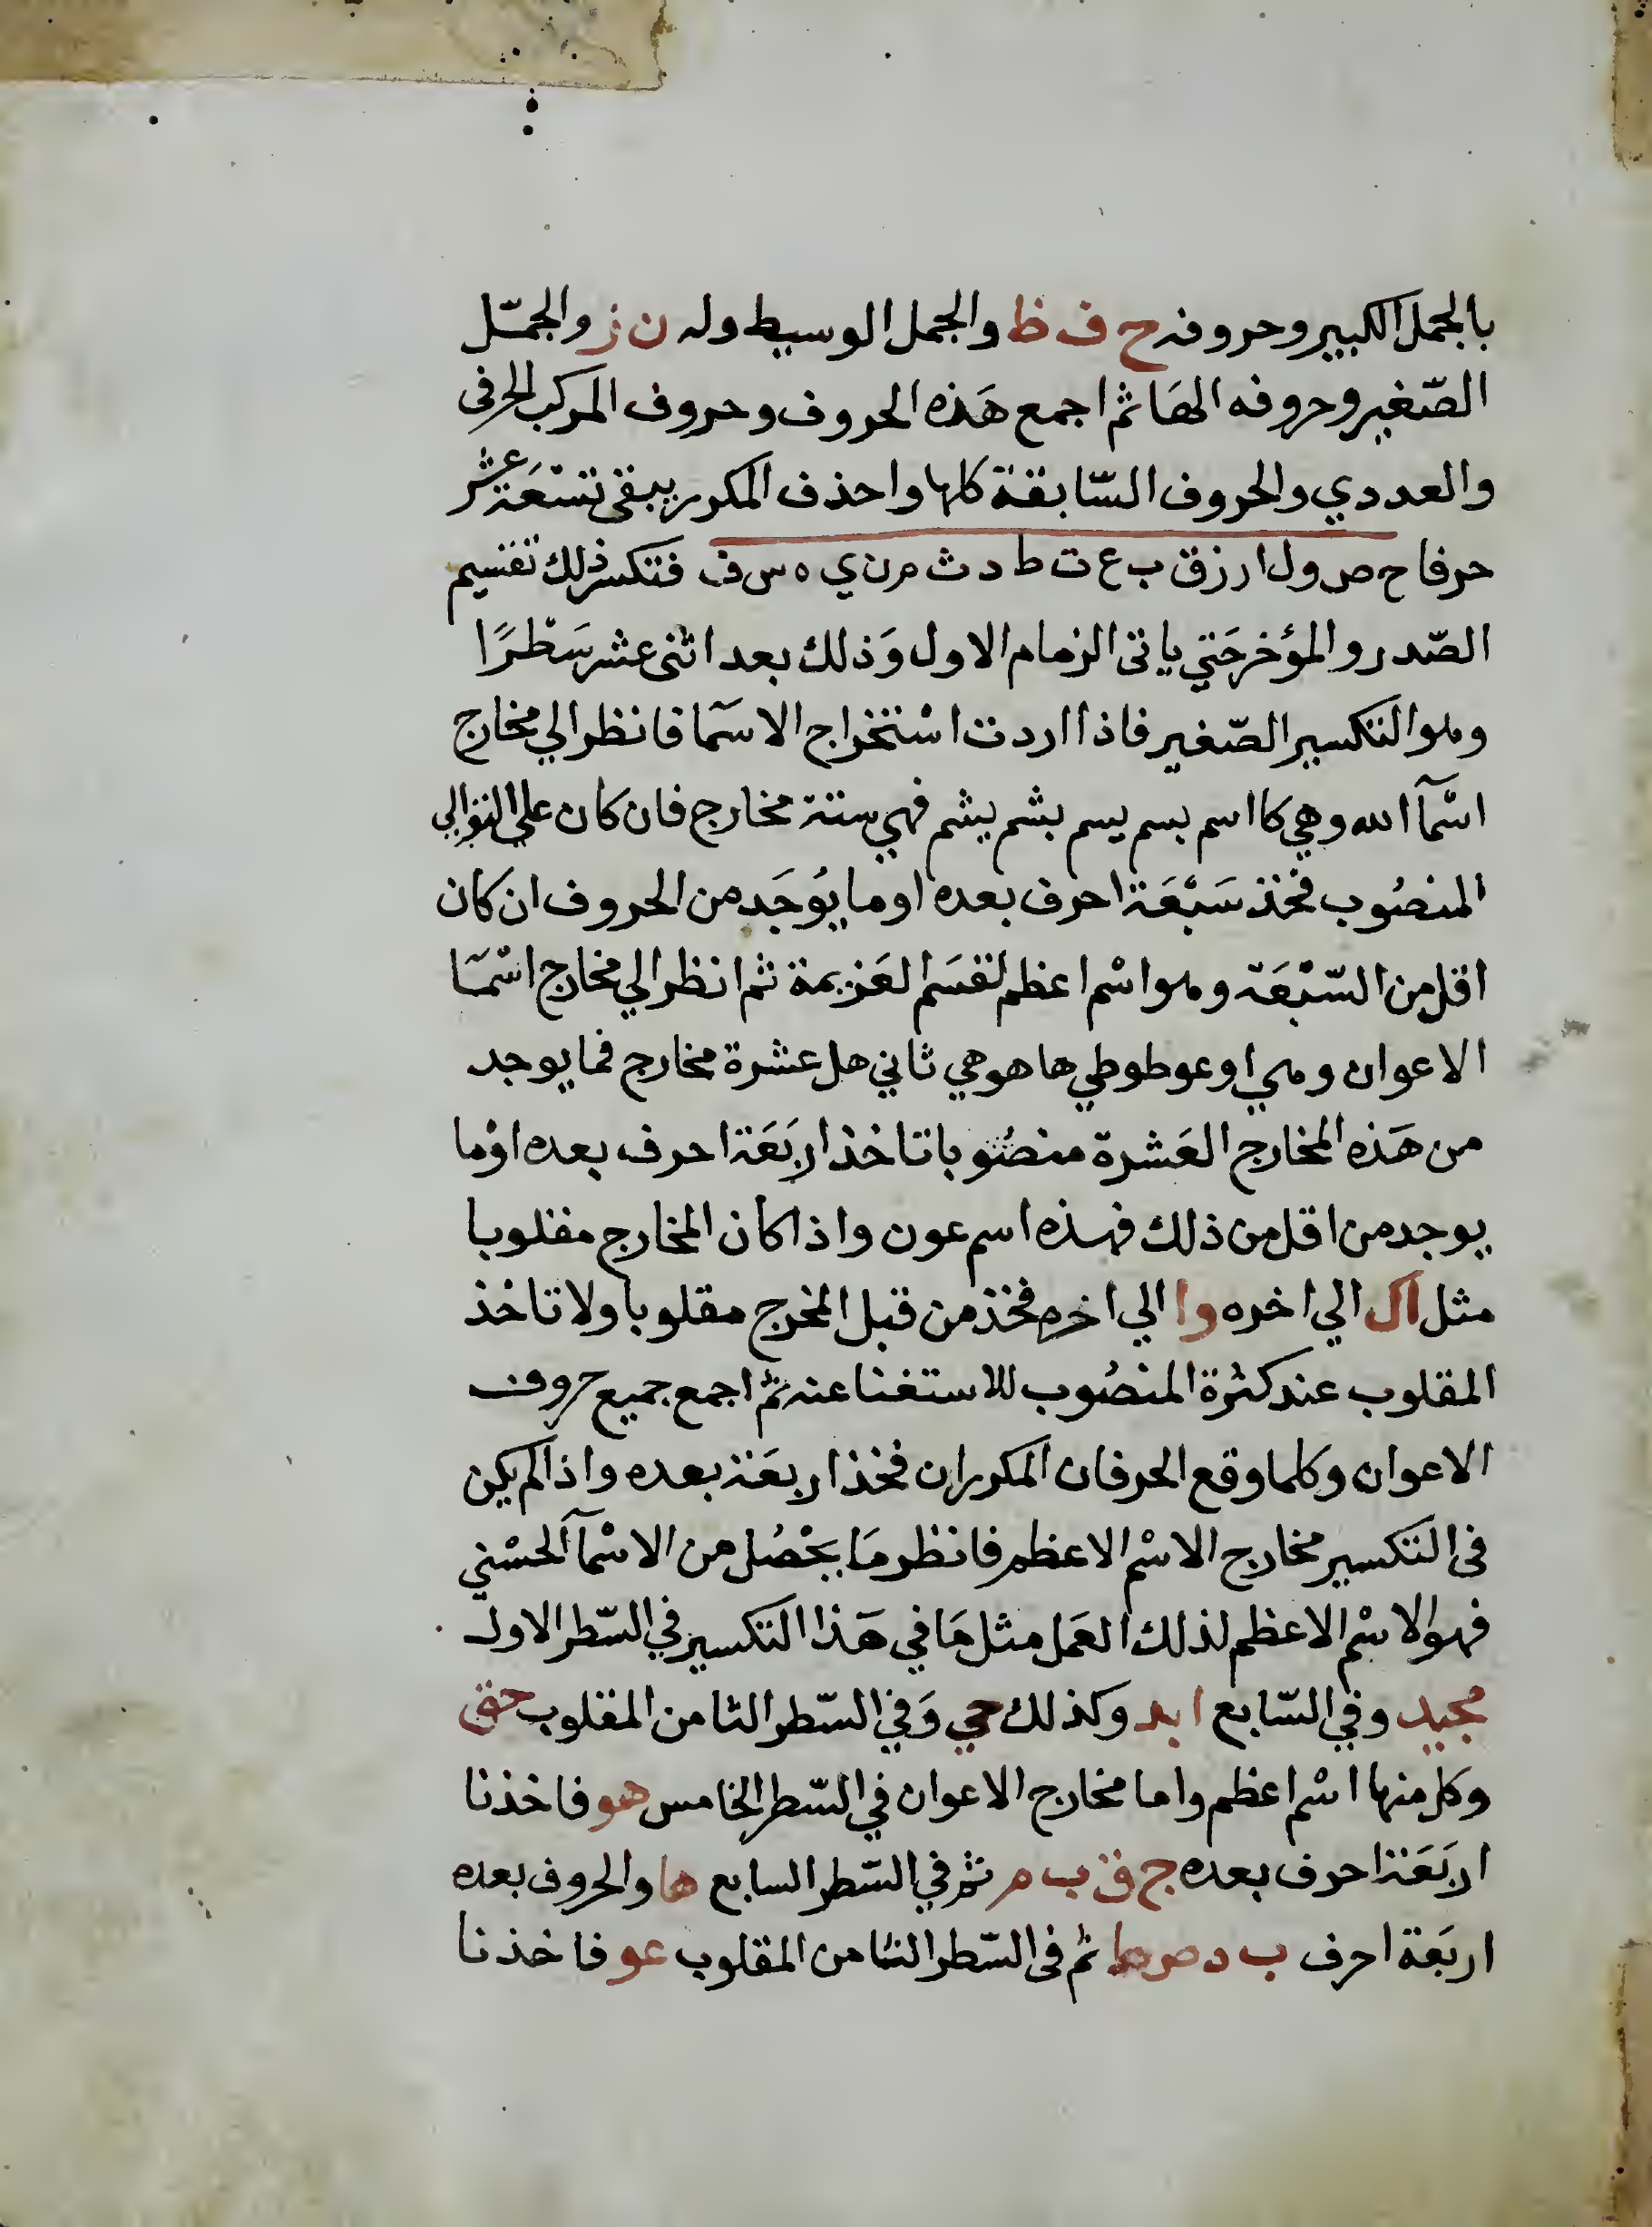 بالجمل الكبير وحروفه ح ف ظ والجمل الوسيط وله ن ز والجمّل
الصّغير وحروفه الهَا ثم اجمع هَذه الحروف وحروف المركب الحرفى
والعددي والحروف السّابقة كلها واحذف المكرر يبقى تسْعَة عشر
حرفا ح ص و ل ا ر ز ق ب ع ت ط د ث م ن ي ه س ف فتكسر ذلك تقسيم
الصّدر والمؤخر حَتي ياتى الزمام الاول وَذلك بعد اثنى عشر سَطْرًا
وهو التكسير الصّغير فاذا اردت اسْتخراج الاسَمآ فانظر الي مخارج
اسْمآ الله وهي كا اسم بسم يسم بشم يشم فهي ستة مخارج فان كان علي التوالي
المنصُوب فخذ سَبْعَة احرف بعده او ما يوُجَد من الحروف ان كان
اقل من السّبْعَة وهو اسْم اعظم لقسَم العَزيمة ثم انظر الي مخارج اسْمَا
الاعوان وهي ا وعو طوطي ها هو هي ثاني هل عشرة مخارج فما يوجد
من هَذه المخارج العَشرة منصُوبا تاخذ اربَعَة احرف بعده اوْما
يوجد من اقل من ذلك فهذه اسم عون واذا كان المخارج مقلوبا
مثل ال الي اخره وا الي اخره فخذ من قبل المخرج مقلوبا ولا تاخذ
المقلوب عند كثرة المنصُوب للاستغنا عنه ثم اجمع جميع حروف
الاعوان وكلما وقع الحرفان المكرران فخذ اربعَة بعده واذا لم يكن
فى التكسير مخارج الاسْم الاعظم فانظر مَا يحْصُل من الاسْمآ الحسْني
فهو الاسْم الاعظم لذلك العَمل مثل مَا في هَذا التكسير في السّطر الاول
مجيد وفي السّابع ابد وكذلك حي وَفي السّطر الثامن المقلوب حق
وكل منها اسْم اعظم واما مخارج الاعوان في السّطر الخامس هو فاخذنا
اربَعَة احرف بعده ج ق ب م ثم في السّطر السابع ها والحروف بعده
اربَعَة احرف ب د ص ط ثم فى السّطر الثامن المقلوب عو فاخذنا